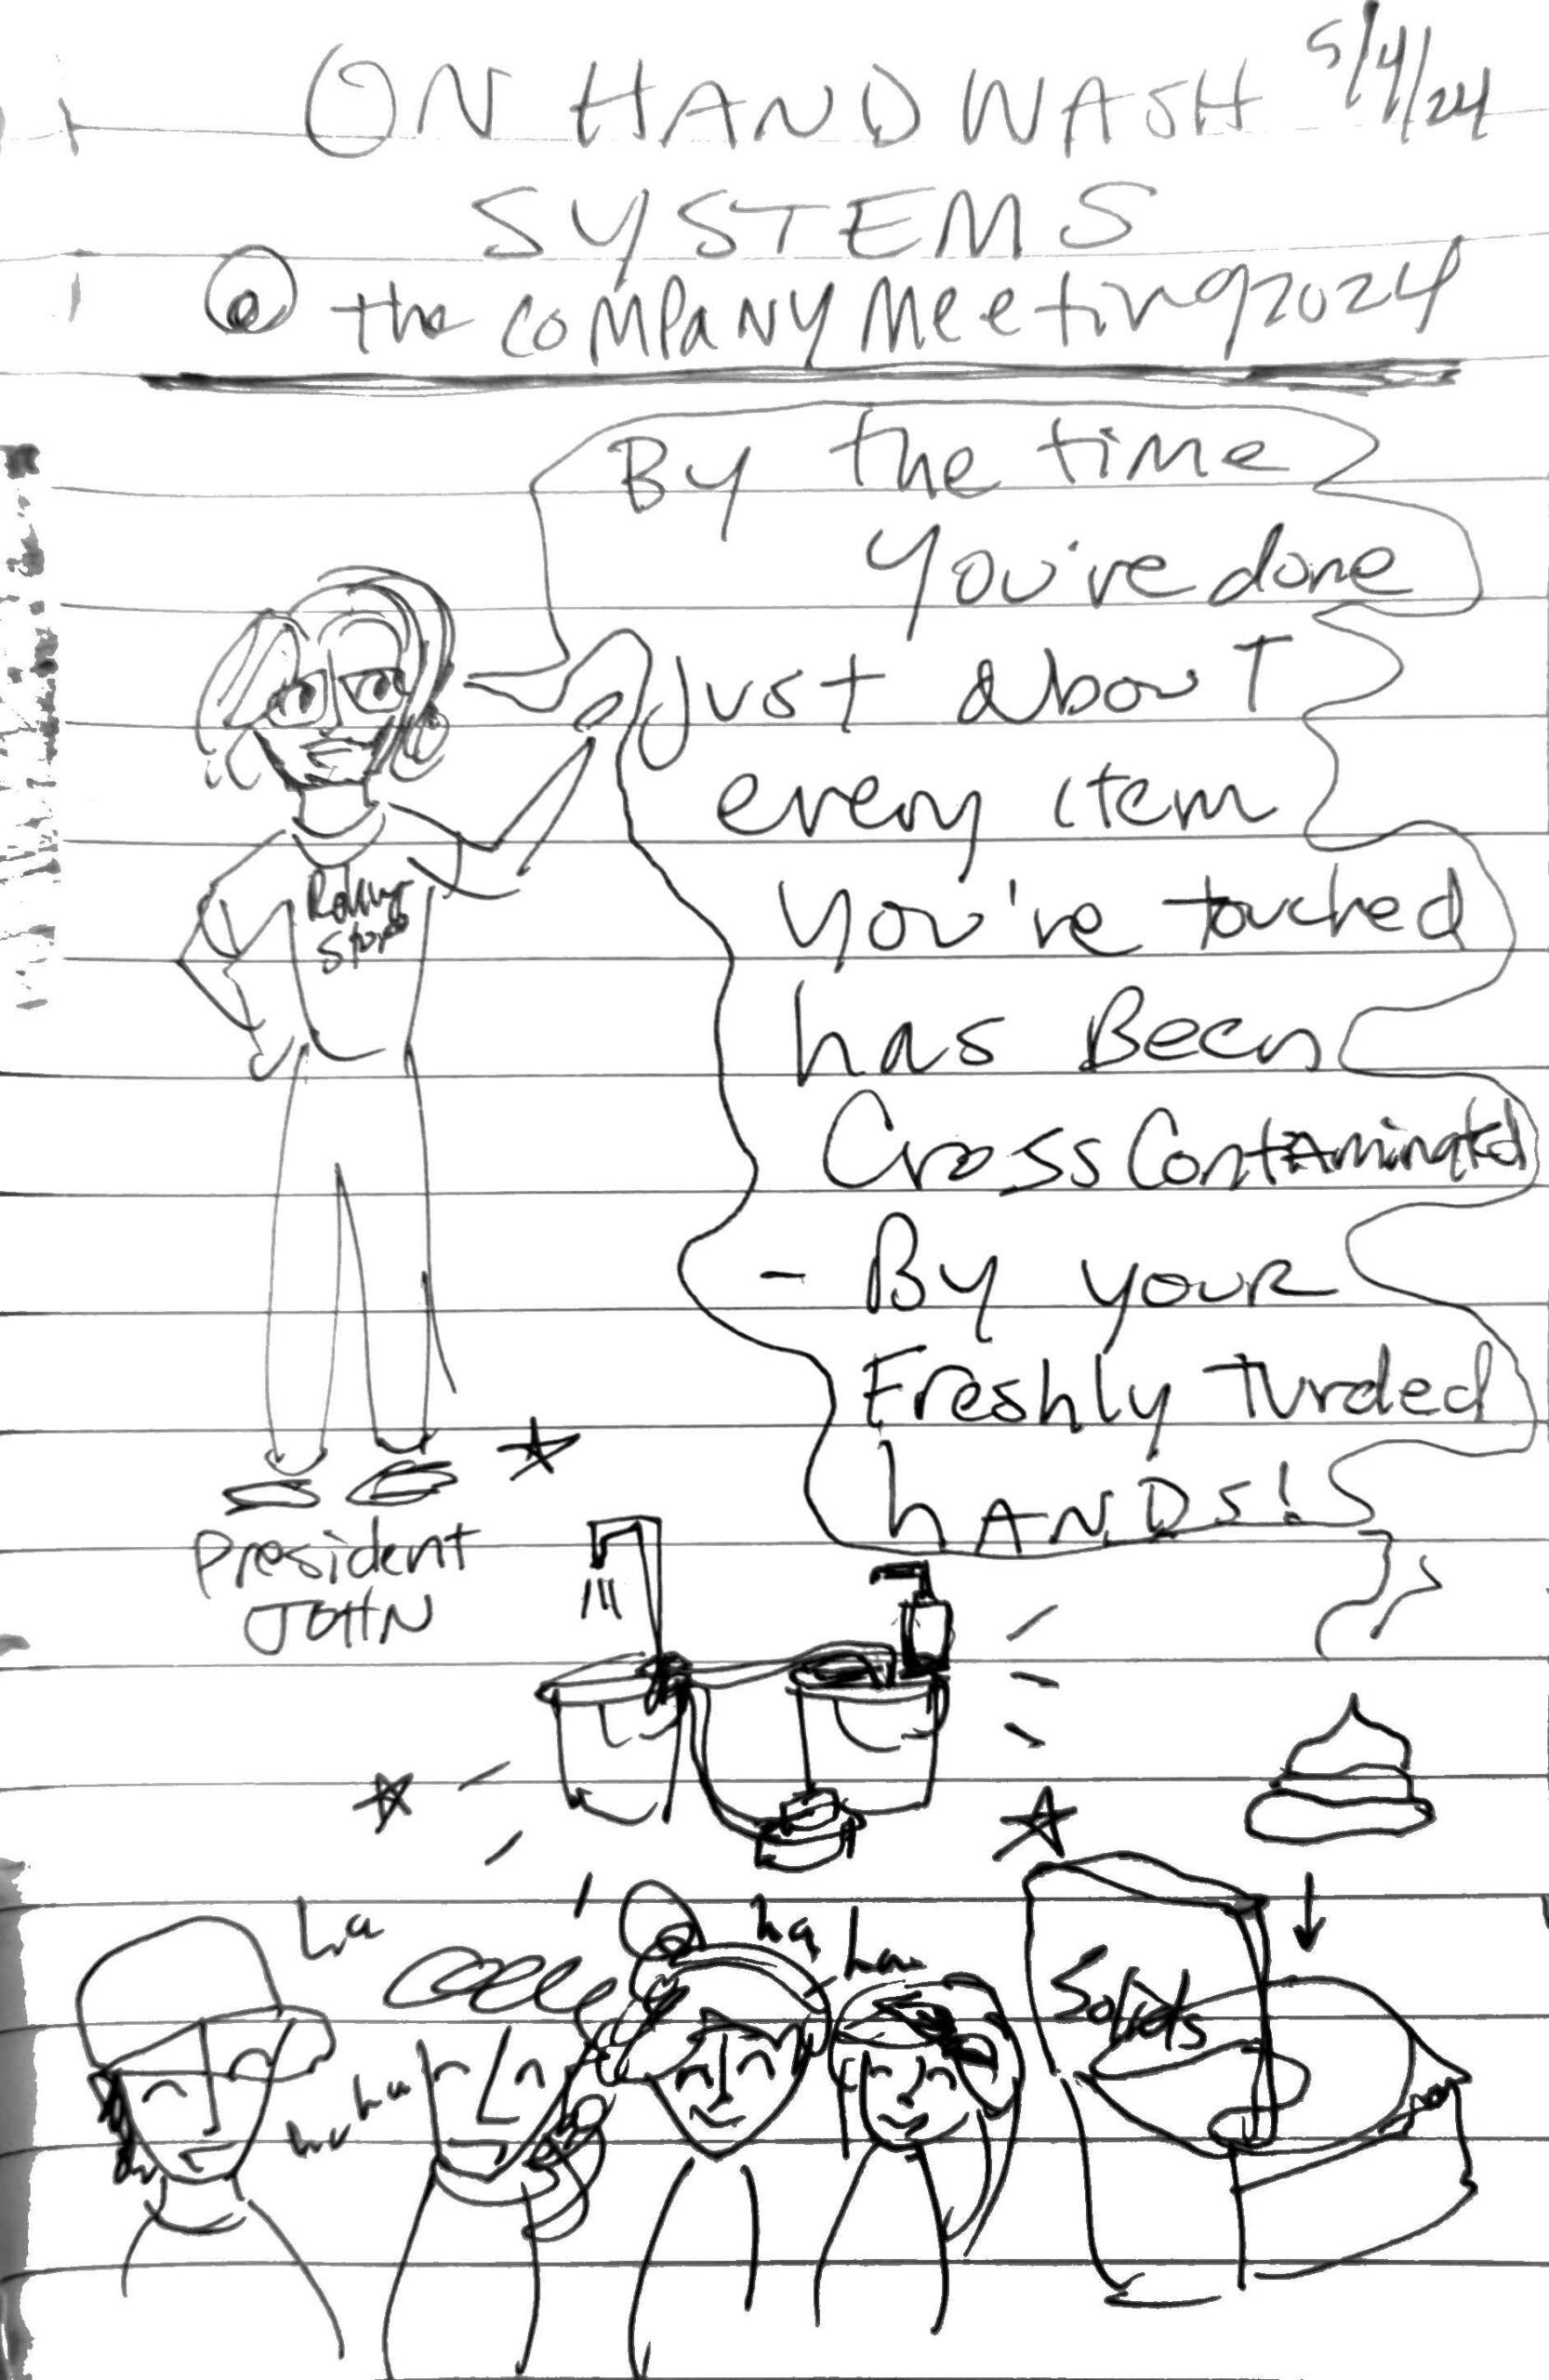 ON HAND WASH 5/4/24
SYSTEMS
@ the COMPANY Meeting 2024
By the time
You've done
Just about
every item
you've touched
has Been
Cross Contaminated
- By your
Freshly turded
hANDS!
Rolling
Stone
President
JOHN
ha
ha ha
ha
Solids